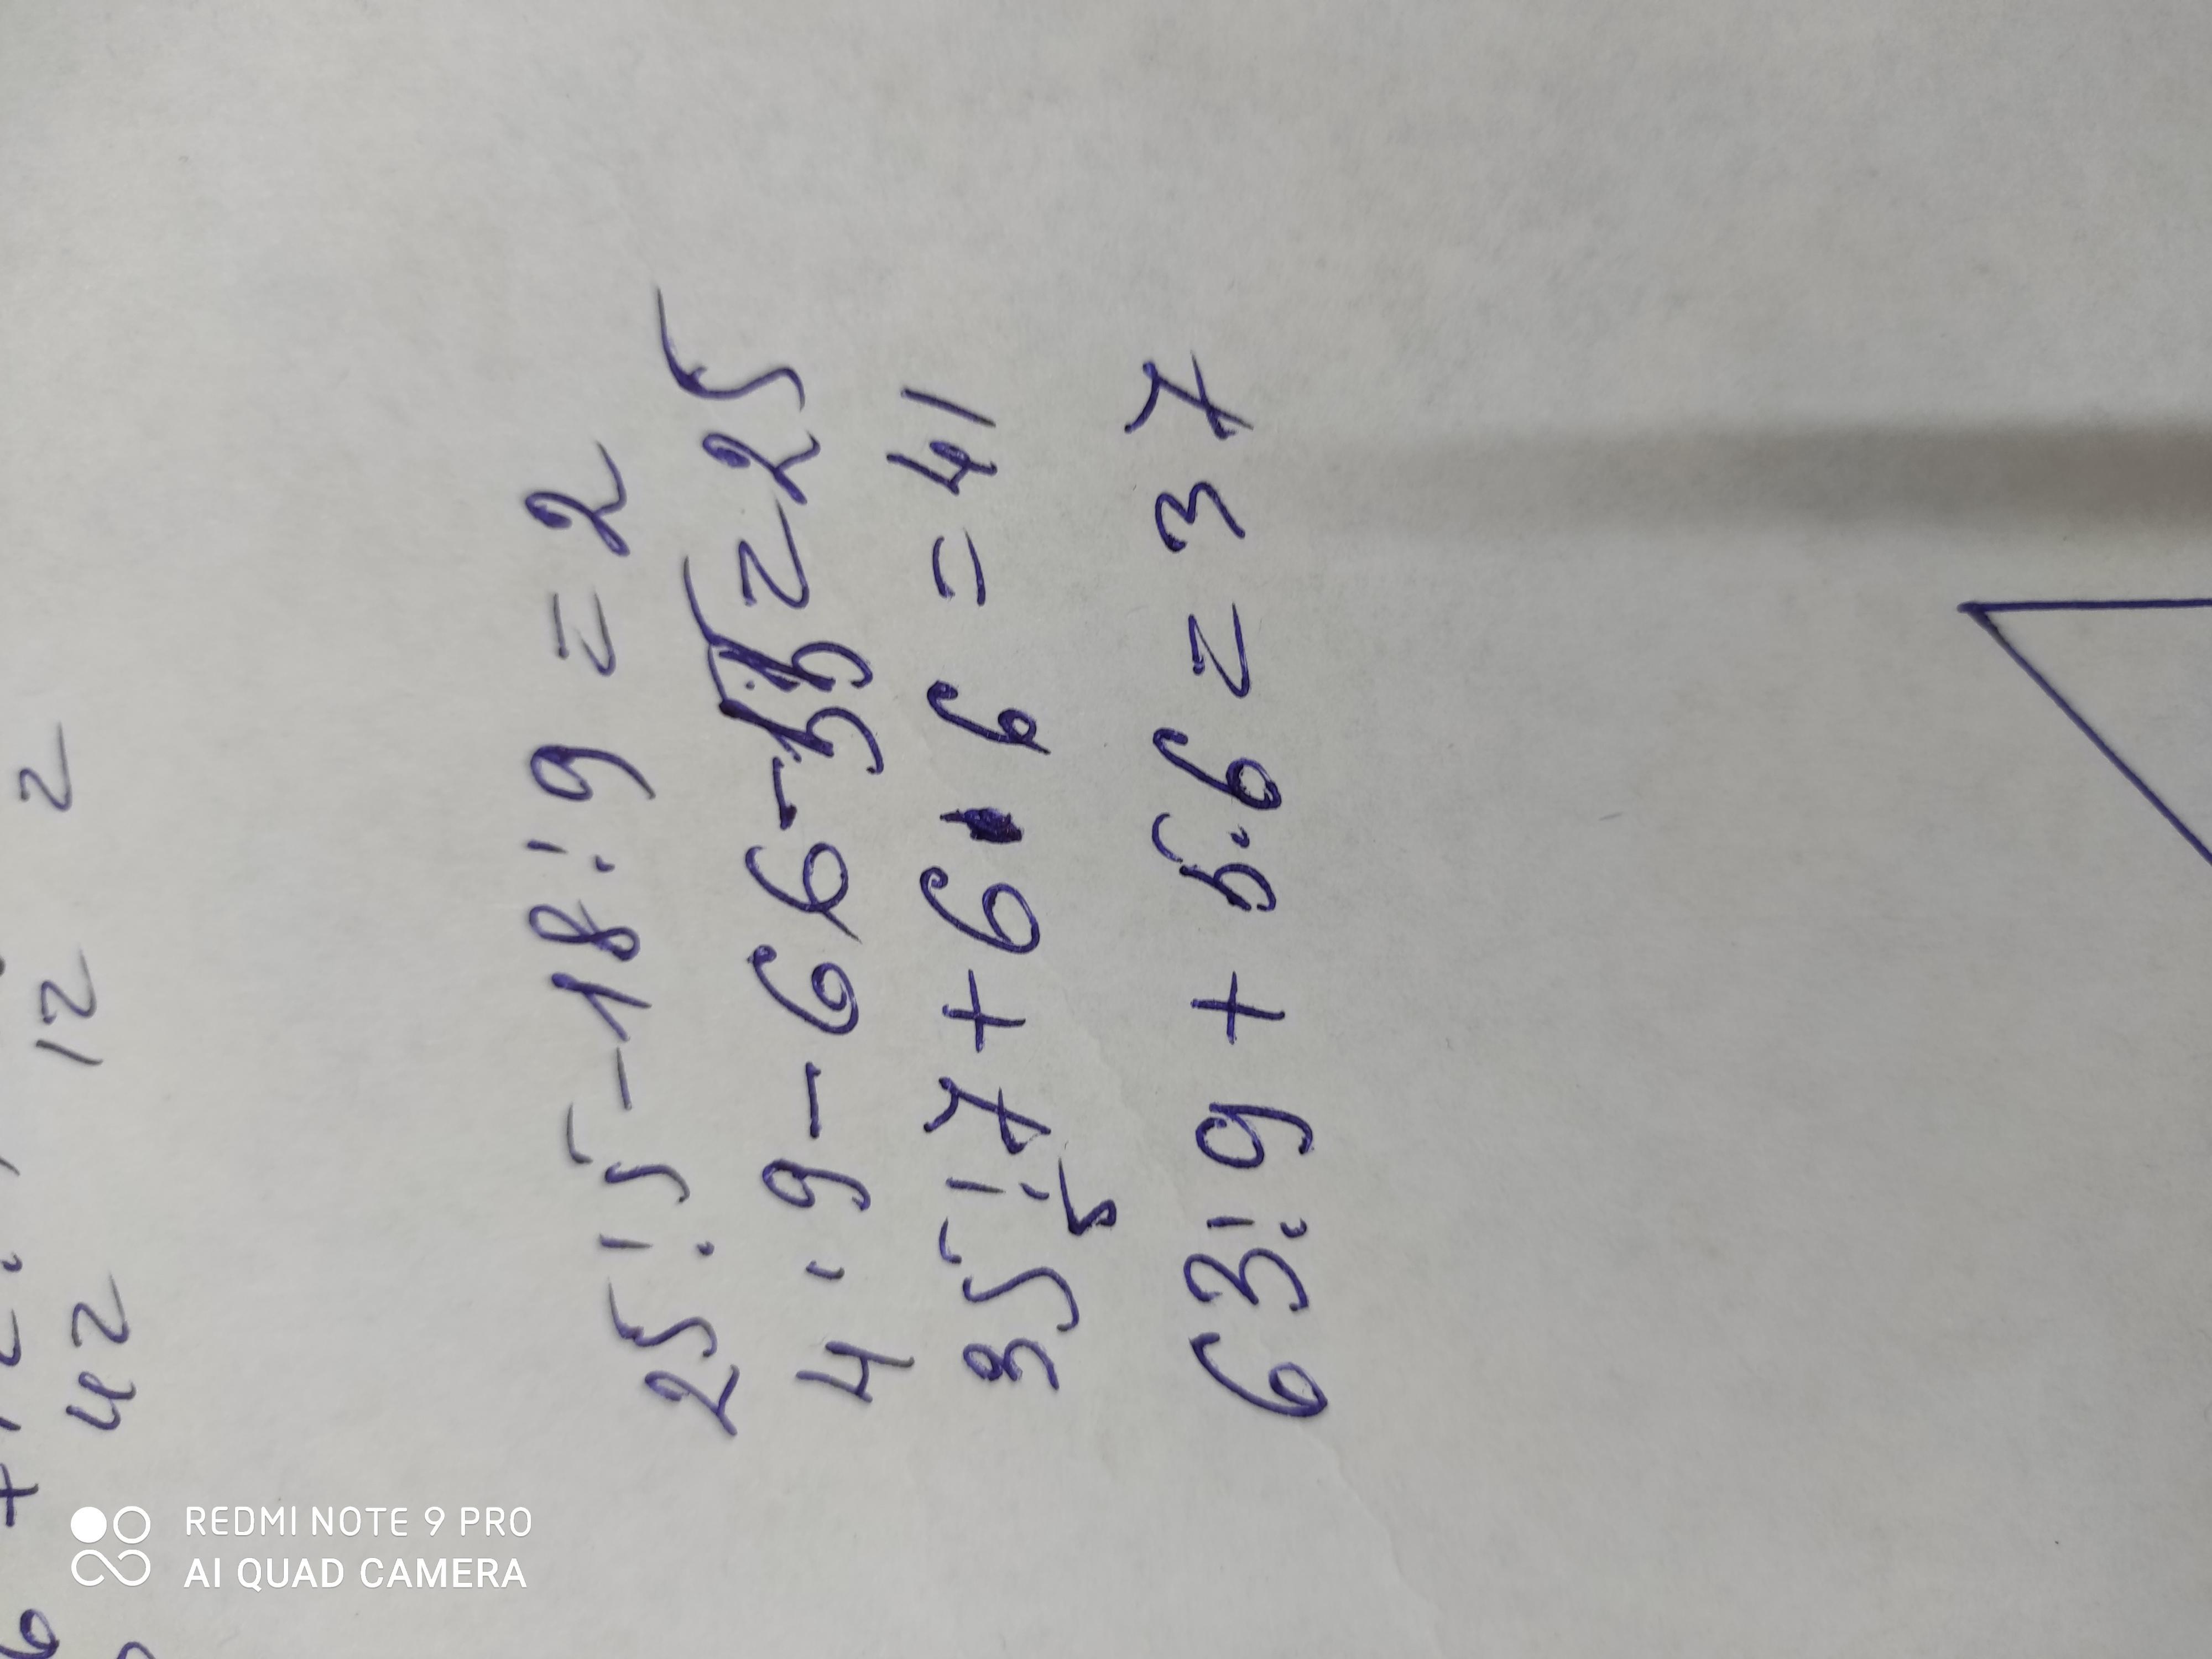 42 12 2
25:5-18:9=2
4·9-66-55=25
35:7+6·6=41
5
63:9+5·6=37
REDMI NOTE 9 PRO
AI QUAD CAMERA